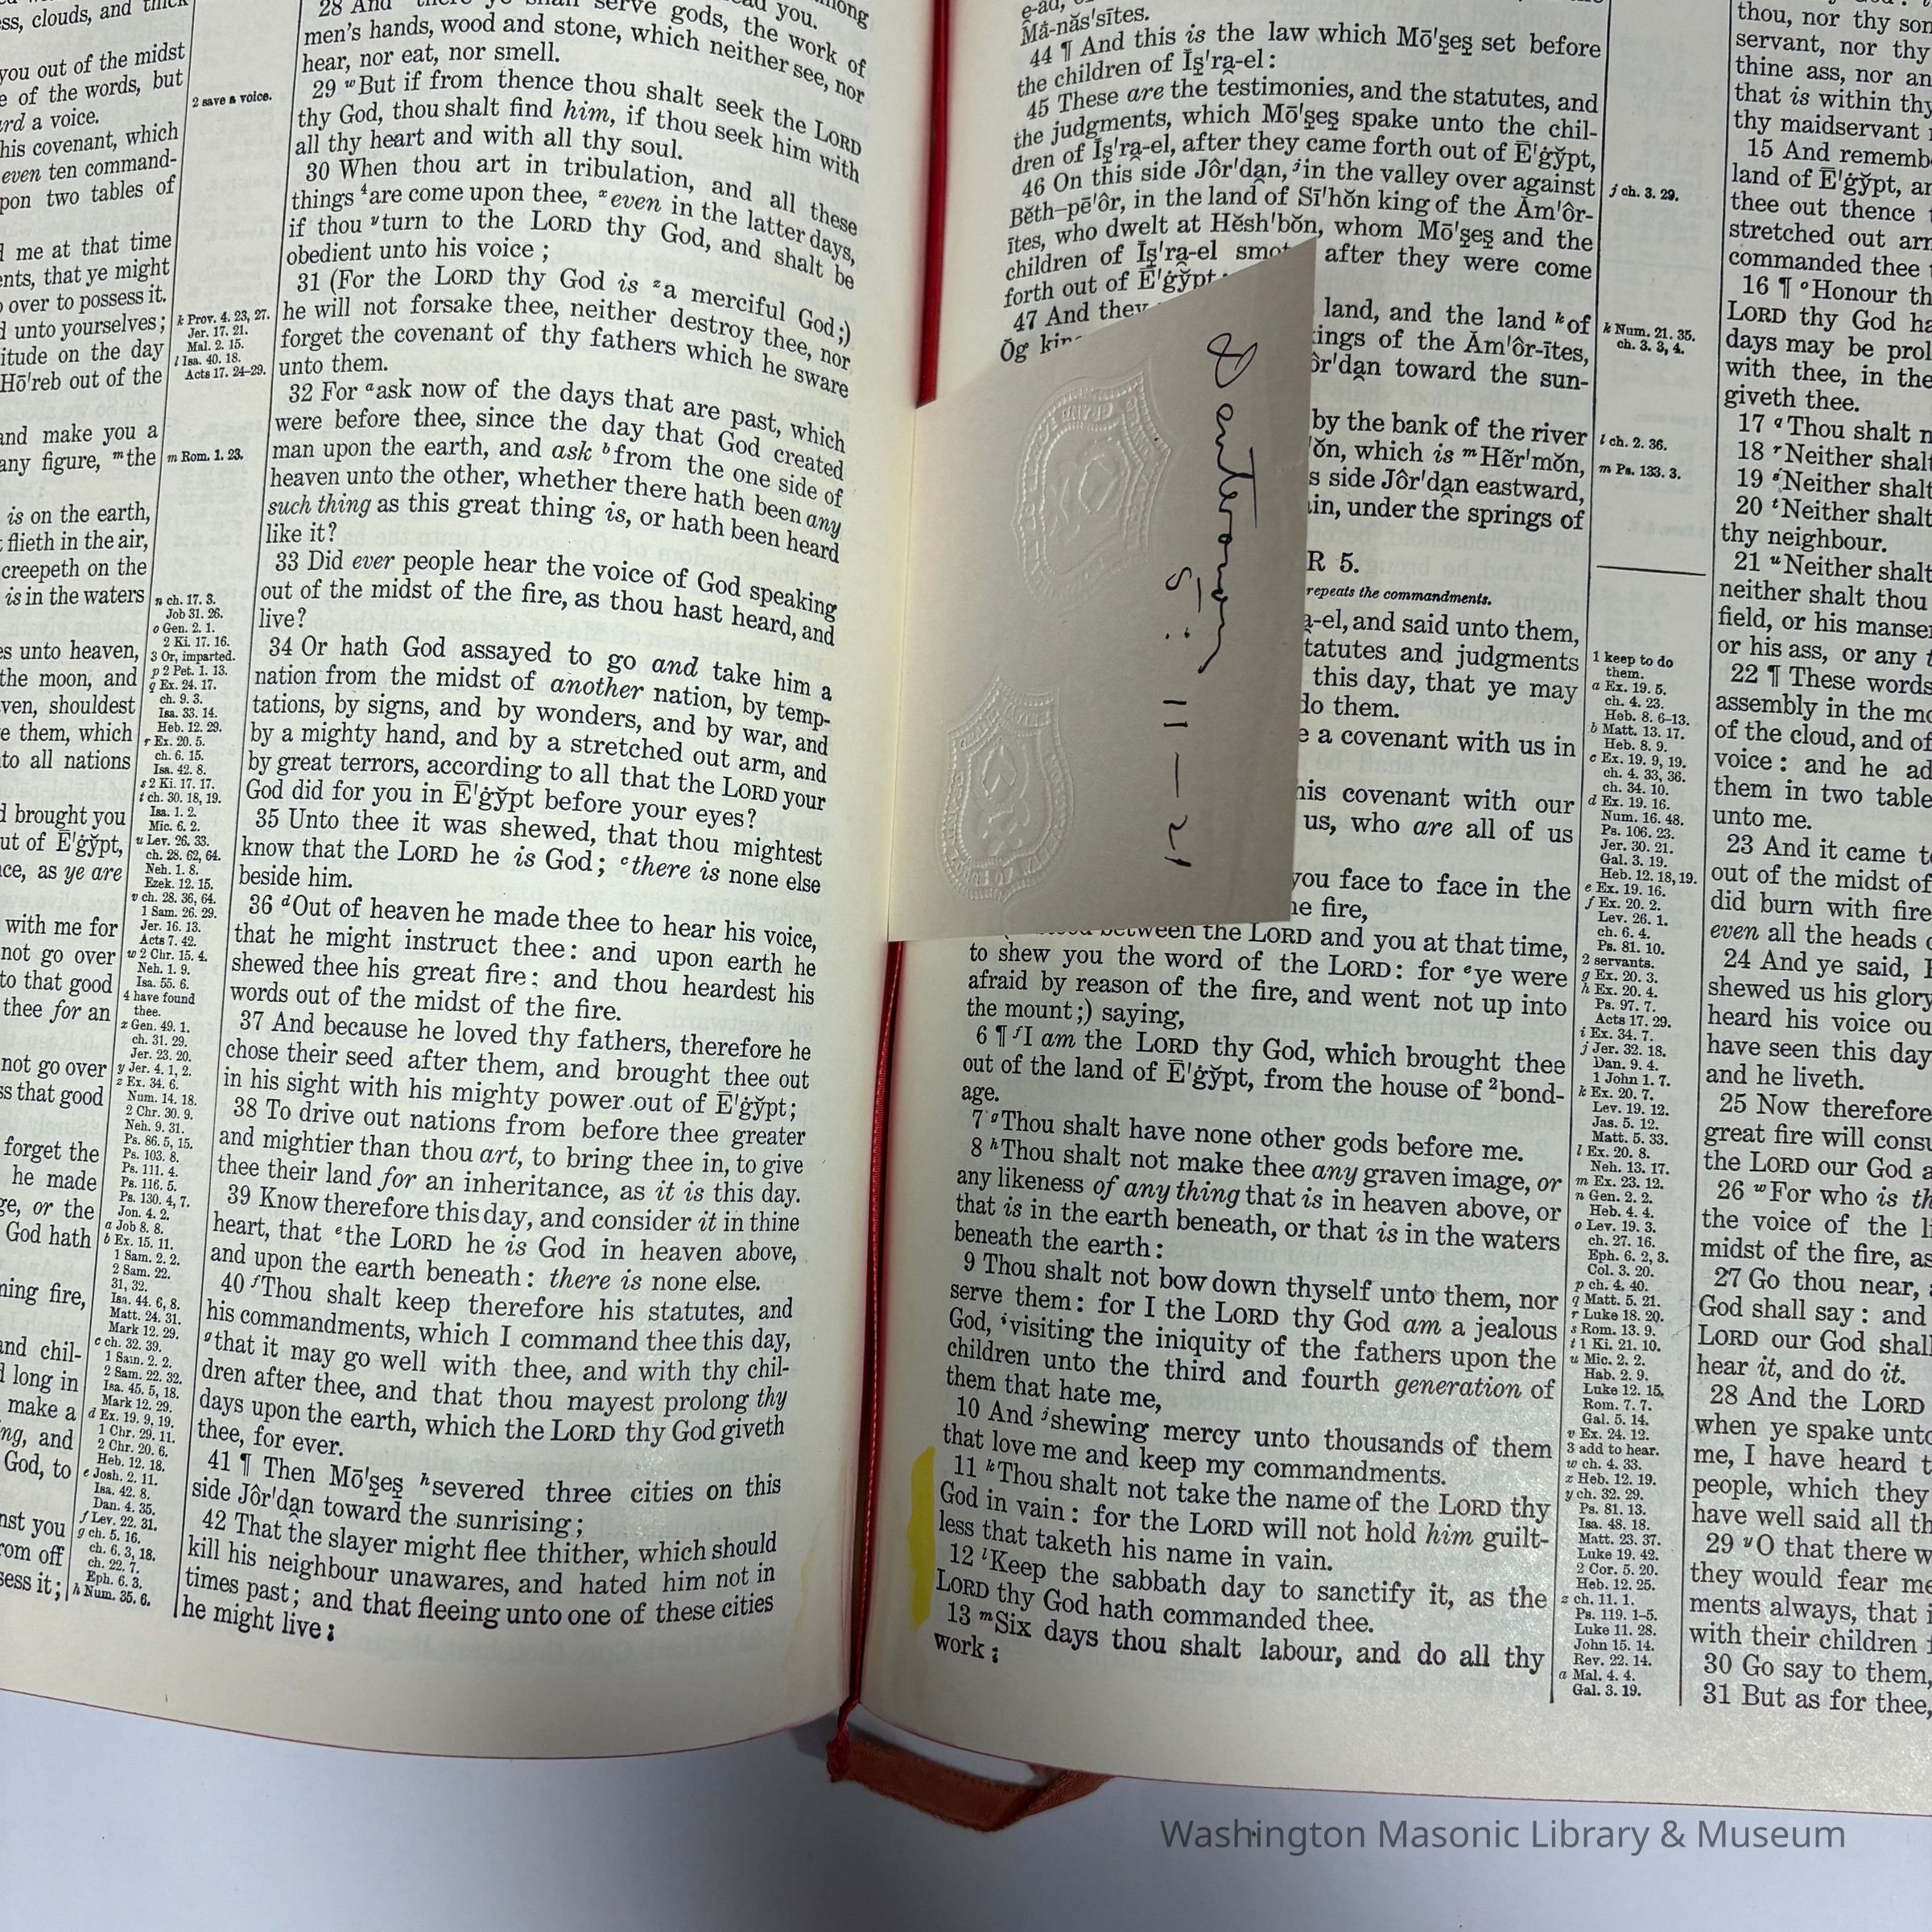 ss, clouds, and thick
you out of the midst
e of the words, but
ard a voice.
his covenant, which
even ten command-
pon two tables of
d me at that time
ents, that ye might
o over to possess it.
d unto yourselves;
itude on the day
Hō'reb out of the
and make you a
any figure, ᵐthe
is on the earth,
t flieth in the air,
creepeth on the
is in the waters
es unto heaven,
the moon, and
ven, shouldest
e them, which
to all nations
d brought you
ut of Ē'ġy̆pt,
ce, as ye are
with me for
not go over
to that good
thee for an
not go over
ss that good
forget the
he made
ge, or the
God hath
ning fire,
and chil-
d long in
make a
ng, and
God, to
nst you
rom off
sess it;
2 save a voice.
k Prov. 4. 23, 27.
Jer. 17. 21.
Mal. 2. 15.
l Isa. 40. 18.
Acts 17. 24–29.
m Rom. 1. 23.
n ch. 17. 3.
Job 31. 26.
o Gen. 2. 1.
2 Ki. 17. 16.
3 Or, imparted.
p 2 Pet. 1. 13.
q Ex. 24. 17.
ch. 9. 3.
Isa. 33. 14.
Heb. 12. 29.
r Ex. 20. 5.
ch. 6. 15.
Isa. 42. 8.
s 2 Ki. 17. 17.
t ch. 30. 18, 19.
Isa. 1. 2.
Mic. 6. 2.
u Lev. 26. 33.
ch. 28. 62, 64.
Neh. 1. 8.
Ezek. 12. 15.
v ch. 28. 36, 64.
1 Sam. 26. 29.
Jer. 16. 13.
Acts 7. 42.
w 2 Chr. 15. 4.
Neh. 1. 9.
Isa. 55. 6.
4 have found
thee.
x Gen. 49. 1.
ch. 31. 29.
Jer. 23. 20.
y Jer. 4. 1, 2.
z Ex. 34. 6.
Num. 14. 18.
2 Chr. 30. 9.
Neh. 9. 31.
Ps. 86. 5, 15.
Ps. 103. 8.
Ps. 111. 4.
Ps. 116. 5.
Ps. 130. 4, 7.
Jon. 4. 2.
a Job 8. 8.
b Ex. 15. 11.
1 Sam. 2. 2.
2 Sam. 22.
31, 32.
Isa. 44. 6, 8.
Matt. 24. 31.
Mark 12. 29.
c ch. 32. 39.
1 Sam. 2. 2.
2 Sam. 22. 32.
Isa. 45. 5, 18.
Mark 12. 29.
d Ex. 19. 9, 19.
1 Chr. 29. 11.
2 Chr. 20. 6.
Heb. 12. 18.
e Josh. 2. 11.
Isa. 42. 8.
Dan. 4. 35.
f Lev. 22. 31.
g ch. 5. 16.
ch. 6. 3, 18.
ch. 22. 7.
Eph. 6. 3.
h Num. 35. 6.
28 And there ye shall serve gods, the work of
men's hands, wood and stone, which neither see, nor
hear, nor eat, nor smell.
29 ʷBut if from thence thou shalt seek the LORD
thy God, thou shalt find him, if thou seek him with
all thy heart and with all thy soul.
30 When thou art in tribulation, and all these
things ⁴are come upon thee, ˣeven in the latter days,
if thou ʸturn to the LORD thy God, and shalt be
obedient unto his voice;
31 (For the LORD thy God is ᶻa merciful God;)
he will not forsake thee, neither destroy thee, nor
forget the covenant of thy fathers which he sware
unto them.
32 For ᵃask now of the days that are past, which
were before thee, since the day that God created
man upon the earth, and ask ᵇfrom the one side of
heaven unto the other, whether there hath been any
such thing as this great thing is, or hath been heard
like it?
33 Did ever people hear the voice of God speaking
out of the midst of the fire, as thou hast heard, and
live?
34 Or hath God assayed to go and take him a
nation from the midst of another nation, by temp-
tations, by signs, and by wonders, and by war, and
by a mighty hand, and by a stretched out arm, and
by great terrors, according to all that the LORD your
God did for you in Ē'ġy̆pt before your eyes?
35 Unto thee it was shewed, that thou mightest
know that the LORD he is God; ᶜthere is none else
beside him.
36 ᵈOut of heaven he made thee to hear his voice,
that he might instruct thee: and upon earth he
shewed thee his great fire; and thou heardest his
words out of the midst of the fire.
37 And because he loved thy fathers, therefore he
chose their seed after them, and brought thee out
in his sight with his mighty power out of Ē'ġy̆pt;
38 To drive out nations from before thee greater
and mightier than thou art, to bring thee in, to give
thee their land for an inheritance, as it is this day.
39 Know therefore this day, and consider it in thine
heart, that ᵉthe LORD he is God in heaven above,
and upon the earth beneath: there is none else.
40 ᶠThou shalt keep therefore his statutes, and
his commandments, which I command thee this day,
ᵍthat it may go well with thee, and with thy chil-
dren after thee, and that thou mayest prolong thy
days upon the earth, which the LORD thy God giveth
thee, for ever.
41 ¶ Then Mō'ṣeṣ ʰsevered three cities on this
side Jôr'dan toward the sunrising;
42 That the slayer might flee thither, which should
kill his neighbour unawares, and hated him not in
times past; and that fleeing unto one of these cities
he might live:
Må-năs'sītes.
44 ¶ And this is the law which Mō'ṣeṣ set before
the children of Ĭṣ'ra-el:
45 These are the testimonies, and the statutes, and
the judgments, which Mō'ṣeṣ spake unto the chil-
dren of Ĭṣ'ra-el, after they came forth out of Ē'ġy̆pt,
46 On this side Jôr'dan, ʲin the valley over against
Bĕth–pē'ôr, in the land of Sī'hŏn king of the Ăm'ôr-
ītes, who dwelt at Hĕsh'bŏn, whom Mō'ṣeṣ and the
children of Ĭṣ'ra-el smote after they were come
forth out of Ē'ġy̆pt:
47 And they land, and the land ᵏof
Ŏg king kings of the Ăm'ôr-ītes,
ôr'dan toward the sun-
by the bank of the river
'ŏn, which is ᵐHẽr'mŏn,
s side Jôr'dan eastward,
in, under the springs of
R 5.
repeats the commandments.
a-el, and said unto them,
tatutes and judgments
this day, that ye may
do them.
e a covenant with us in
his covenant with our
us, who are all of us
you face to face in the
he fire,
between the LORD and you at that time,
to shew you the word of the LORD: for ᵉye were
afraid by reason of the fire, and went not up into
the mount;) saying,
6 ¶ ᶠI am the LORD thy God, which brought thee
out of the land of Ē'ġy̆pt, from the house of ²bond-
age.
7 ᵍThou shalt have none other gods before me.
8 ʰThou shalt not make thee any graven image, or
any likeness of any thing that is in heaven above, or
that is in the earth beneath, or that is in the waters
beneath the earth:
9 Thou shalt not bow down thyself unto them, nor
serve them: for I the LORD thy God am a jealous
God, ⁱvisiting the iniquity of the fathers upon the
children unto the third and fourth generation of
them that hate me,
10 And ʲshewing mercy unto thousands of them
that love me and keep my commandments.
11 ᵏThou shalt not take the name of the LORD thy
God in vain: for the LORD will not hold him guilt-
less that taketh his name in vain.
12 ˡKeep the sabbath day to sanctify it, as the
LORD thy God hath commanded thee.
13 ᵐSix days thou shalt labour, and do all thy
work:
Deuteronomy
5: 11–21
j ch. 3. 29.
k Num. 21. 35.
ch. 3. 3, 4.
l ch. 2. 36.
m Ps. 133. 3.
1 keep to do
them.
a Ex. 19. 5.
ch. 4. 23.
Heb. 8. 6–13.
b Matt. 13. 17.
Heb. 8. 9.
c Ex. 19. 9, 19.
ch. 4. 33, 36.
ch. 34. 10.
d Ex. 19. 16.
Num. 16. 48.
Ps. 106. 23.
Jer. 30. 21.
Gal. 3. 19.
Heb. 12. 18, 19.
e Ex. 19. 16.
f Ex. 20. 2.
Lev. 26. 1.
ch. 6. 4.
Ps. 81. 10.
2 servants.
g Ex. 20. 3.
h Ex. 20. 4.
Ps. 97. 7.
Acts 17. 29.
i Ex. 34. 7.
j Jer. 32. 18.
Dan. 9. 4.
1 John 1. 7.
k Ex. 20. 7.
Lev. 19. 12.
Jas. 5. 12.
Matt. 5. 33.
l Ex. 20. 8.
Neh. 13. 17.
m Ex. 23. 12.
n Gen. 2. 2.
Heb. 4. 4.
o Lev. 19. 3.
ch. 27. 16.
Eph. 6. 2, 3.
Col. 3. 20.
p ch. 4. 40.
q Matt. 5. 21.
r Luke 18. 20.
s Rom. 13. 9.
t 1 Ki. 21. 10.
u Mic. 2. 2.
Hab. 2. 9.
Luke 12. 15.
Rom. 7. 7.
Gal. 5. 14.
v Ex. 24. 12.
3 add to hear.
w ch. 4. 33.
x Heb. 12. 19.
y ch. 32. 29.
Ps. 81. 13.
Isa. 48. 18.
Matt. 23. 37.
Luke 19. 42.
2 Cor. 5. 20.
Heb. 12. 25.
z ch. 11. 1.
Ps. 119. 1–5.
Luke 11. 28.
John 15. 14.
Rev. 22. 14.
a Mal. 4. 4.
Gal. 3. 19.
thou, nor thy son
servant, nor thy
thine ass, nor an
that is within thy
thy maidservant
15 And remembe
land of Ē'ġy̆pt, an
thee out thence
stretched out arm
commanded thee
16 ¶ ᵒHonour th
LORD thy God ha
days may be prol
with thee, in the
giveth thee.
17 ᑫThou shalt n
18 ʳNeither shalt
19 ˢNeither shalt
20 ᵗNeither shalt
thy neighbour.
21 ᵘNeither shalt
neither shalt thou
field, or his manser
or his ass, or any t
22 ¶ These words
assembly in the mo
of the cloud, and of
voice: and he ad
them in two table
unto me.
23 And it came to
out of the midst of
did burn with fire
even all the heads
24 And ye said,
shewed us his glory
heard his voice ou
have seen this day
and he liveth.
25 Now therefore
great fire will consu
the LORD our God a
26 ʷFor who is th
the voice of the li
midst of the fire, as
27 Go thou near,
God shall say: and
LORD our God shall
hear it, and do it.
28 And the LORD
when ye spake unto
me, I have heard t
people, which they
have well said all th
29 ʸO that there w
they would fear me
ments always, that i
with their children f
30 Go say to them,
31 But as for thee,
Washington Masonic Library & Museum